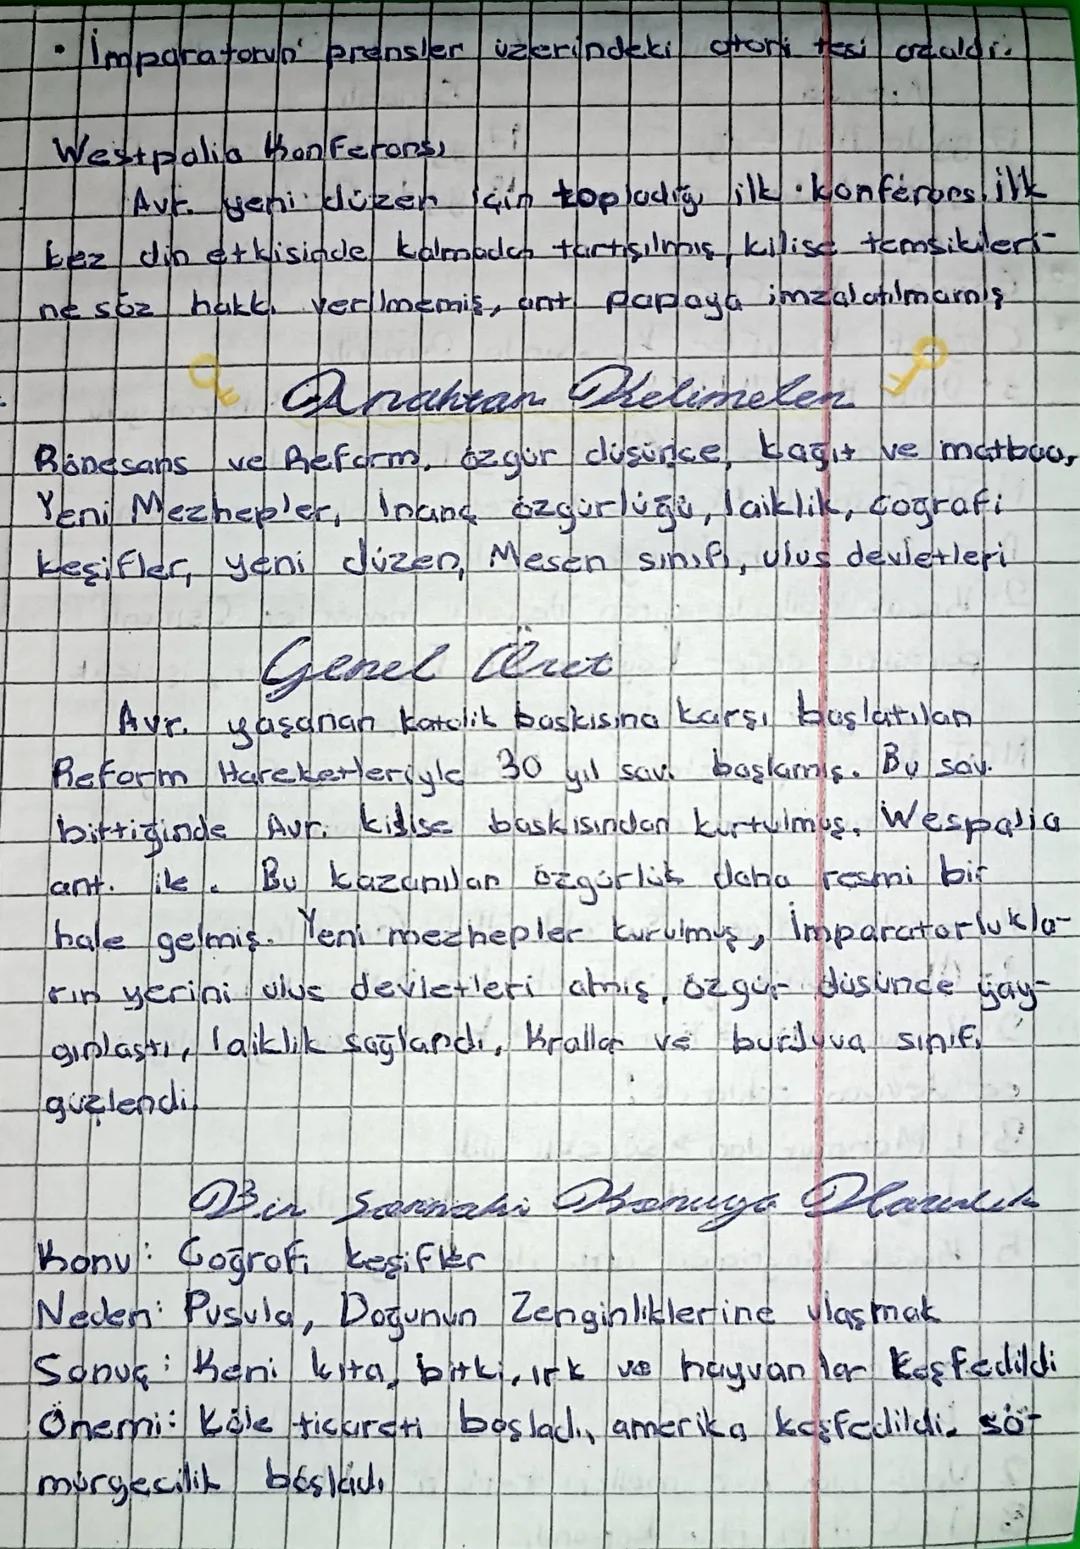 • İmparatorun prensler üzerindeki otoritesi azaldı.
Westpalia Konferansı
Avr. yeni düzen için topladığı ilk konferans, ilk
kez din etkisinde kalmadan tartışılmış, kilise temsikileri-
ne söz hakkı verilmemiş, ant papaya imzalatılmamış
Anahtar Kelimeler
Rönesans ve Reform, özgür düşünce, kağıt ve matbaa,
Yeni Mezhepler, İnanç özgürlüğü, laiklik, coğrafi
keşifler, yeni düzen, Mesen sınıfı, ulus devletleri
Genel Özet
Avr. yaşanan Katolik baskısına karşı başlatılan
Reform Hareketleriyle 30 yıl sav. başlamış. Bu sav.
bittiğinde Avr. kilise baskısından kurtulmuş, Wespalia
ant. ile. Bu kazanılan özgürlük daha resmi bir
hale gelmiş. Yeni mezhepler kurulmuş, İmparatorlukla-
rın yerini ulus devletleri almış, özgür düşünde yay-
gınlaştı, laiklik sağlandı, Krallar ve burjuva sınıfı
güçlendi
Bir Sonraki Konuya Hazırlık
Konu: Coğrafi keşifler
Neden: Pusula, Doğunun Zenginliklerine ulaşmak
Sonuç: Yeni kıta, bitki, ırk ve hayvanlar keşfedildi
Önemi: Köle ticareti başladı, amerika keşfedildi, sö-
mürgecilik başladı